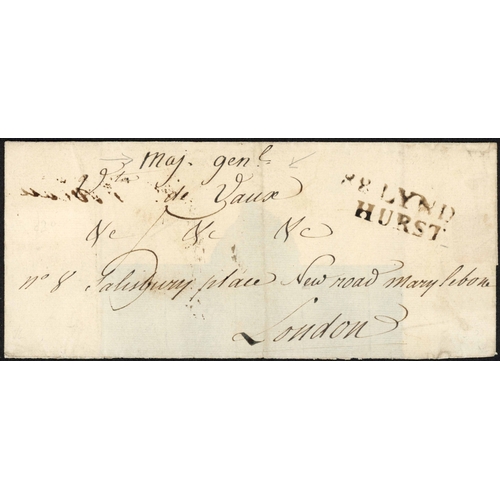 Maj. genl
Vte de Vaux
&c &c &c
no 8 Salisbury place New road Marylebone
London
LYND
HURST